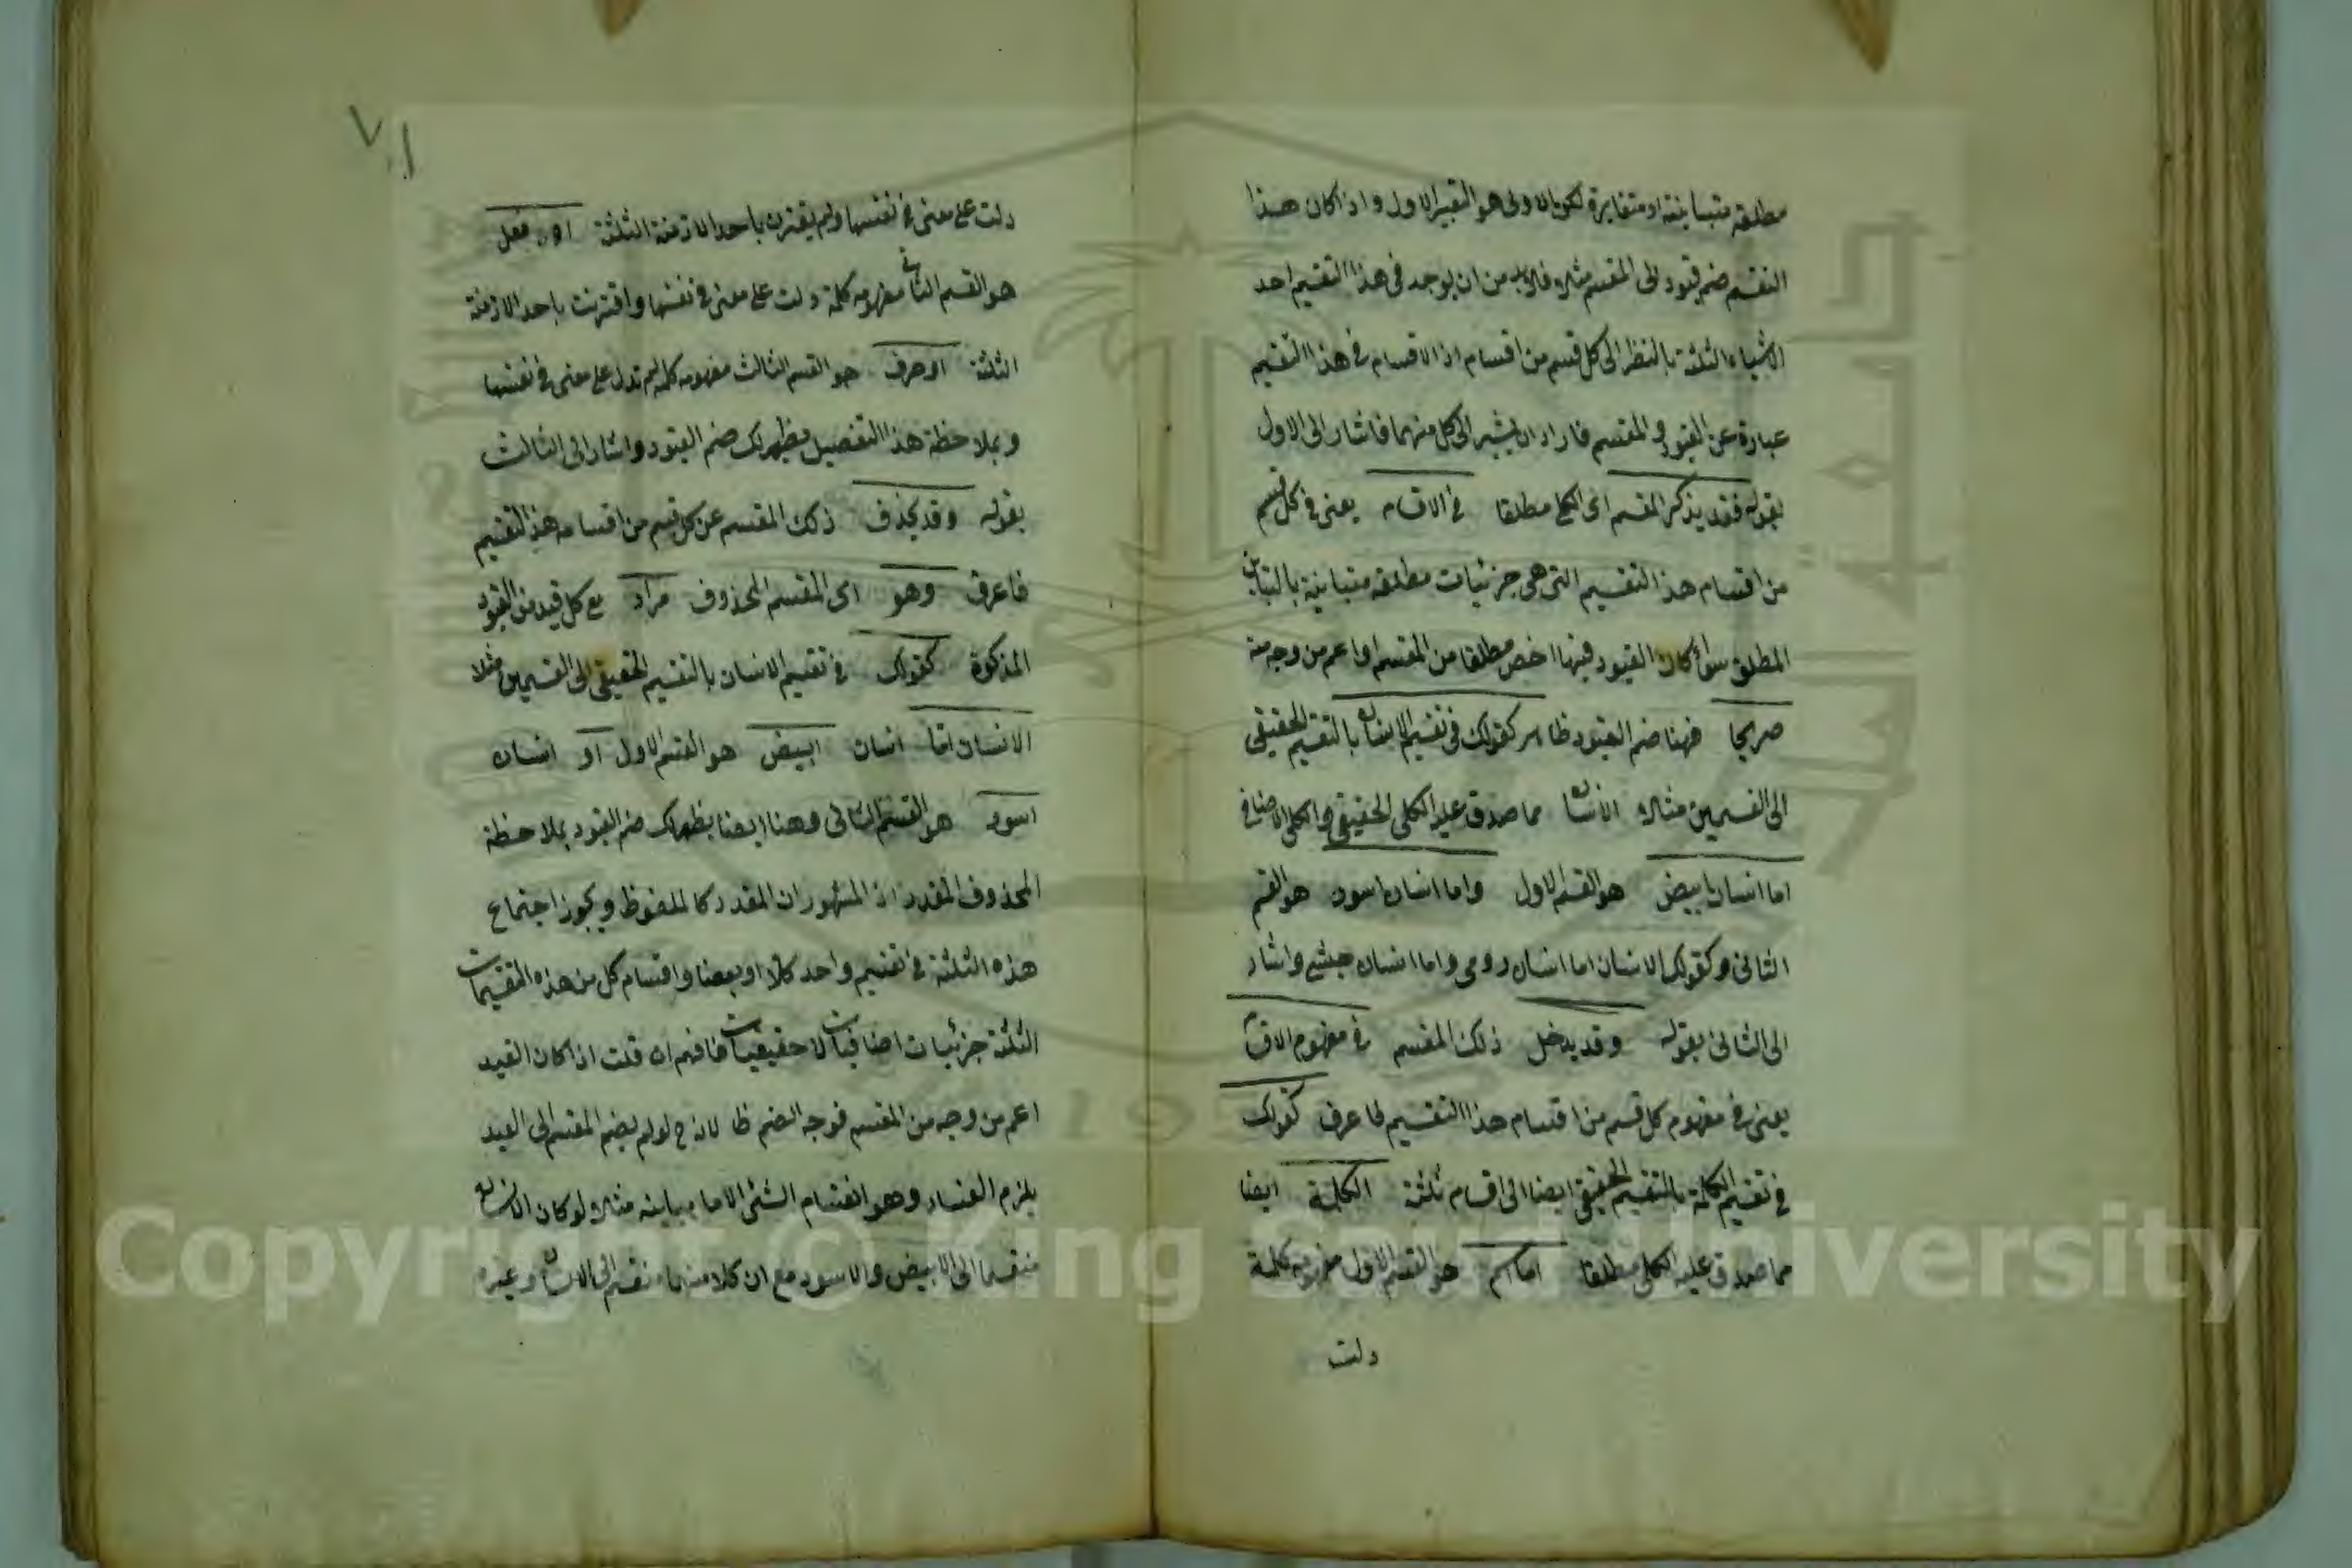 مطلقة متباينة او متغايرة لكون الاولى هو التعبير الاول واذا كان هذا
التقسيم ضم قيود الى المقسم مثلا فلابد من ان يوجد فى هذا التقسيم احد
الاشياء الثلثة بالنظر الى كل قسم من اقسام اذ الاقسام فى هذا التقسيم
عبارة عن القيود والمقسم فاراد ان يشير الى كل منهما فاشار الى الاول
بقوله فقد يذكر المقسم اى الكلى مطلقا فى الاقسام يعنى فى كل قسم
من اقسام هذا التقسيم التى هى جزئيات مطلقة متباينة بالتباين
المطلق سواء كان القيود فيها اخص مطلقا من المقسم او اعم من وجه منه
صريحا فهنا ضم القيود ظاهر كقولك فى تقسيم الانسان بالتقسيم الحقيقى
الى القسمين مثلا الانسان مما صدق عليه الكلى الحقيقى والكلى الاضافى
اما انسان ابيض هو القسم الاول واما انسان اسود هو القسم
الثانى وكقولك الانسان اما انسان رومى واما انسان حبشى واشار
الى الثانى بقوله وقد يدخل ذلك المقسم فى مفهوم الاقسام
يعنى فى مفهوم كل قسم من اقسام هذا التقسيم فاعرف كقولك
فى تقسيم الكلمة بالتقسيم الحقيقى ايضا الى اقسام ثلثة الكلمة ايضا
مما صدق عليه الكلى مطلقا اما اسم هو القسم الاول مفهومه كلمة
دلت
٧١
دلت على معنى فى نفسها ولم يقترن باحد الازمنة الثلثة او فعل
هو القسم الثانى مفهومه كلمة دلت على معنى فى نفسها واقترنت باحد الازمنة
الثلثة او حرف هو القسم الثالث مفهومه كلمة لم تدل على معنى فى نفسها
وبملاحظة هذا التفصيل يظهر لك ضم القيود واشار الى الثالث
بقوله وقد يحذف ذلك المقسم عن كل قسم من اقسام هذا التقسيم
فاعرف وهو اى المقسم المحذوف مراد مع كل قيد من القيود
المذكورة كقولك فى تقسيم الانسان بالتقسيم الحقيقى الى القسمين مثلا
الانسان اما انسان ابيض هو القسم الاول او انسان
اسود هو القسم الثانى وهنا ايضا يظهر لك ضم القيود بملاحظة
المحذوف المقدر اذ المشهور ان المقدر كالملفوظ ويجوز اجتماع
هذه الثلثة فى تقسيم واحد كلا او بعضا واقسام كل من هذه التقسيمات
الثلثة جزئيات اضافيات لا حقيقيات فافهم ان قلت اذا كان القيد
اعم من وجه من المقسم فوجه الضم ظا لان ح لو لم يضم المقسم الى القيد
يلزم الفساد وهو انقسام الشئ الى ما يباينه مثلا لو كان الانسان
منقسما الى الابيض والاسود مع ان كلا منهما منقسم الى الانسان وغيره
Copyright © King Saud University